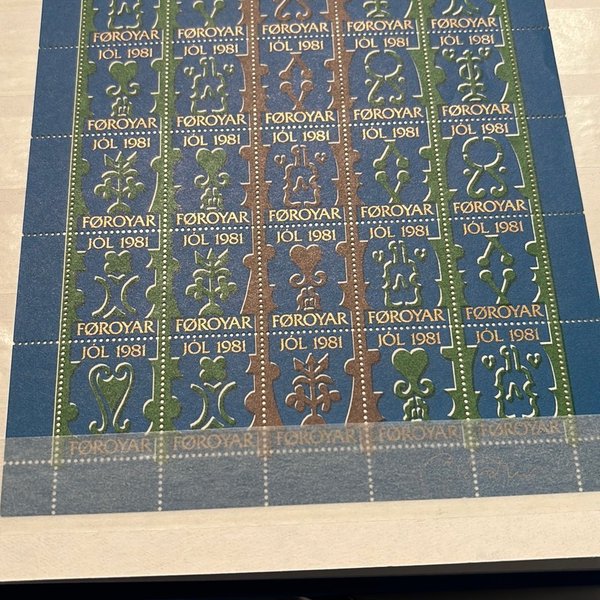 FØROYAR FØROYAR FØROYAR FØROYAR FØROYAR
JÓL 1981 JÓL 1981 JÓL 1981 JÓL 1981 JÓL 1981
FØROYAR FØROYAR FØROYAR FØROYAR FØROYAR
JÓL 1981 JÓL 1981 JÓL 1981 JÓL 1981 JÓL 1981
FØROYAR FØROYAR FØROYAR FØROYAR FØROYAR
JÓL 1981 JÓL 1981 JÓL 1981 JÓL 1981 JÓL 1981
FØROYAR FØROYAR FØROYAR FØROYAR FØROYAR
JÓL 1981 JÓL 1981 JÓL 1981 JÓL 1981 JÓL 1981
FØROYAR FØROYAR FØROYAR FØROYAR FØROYAR